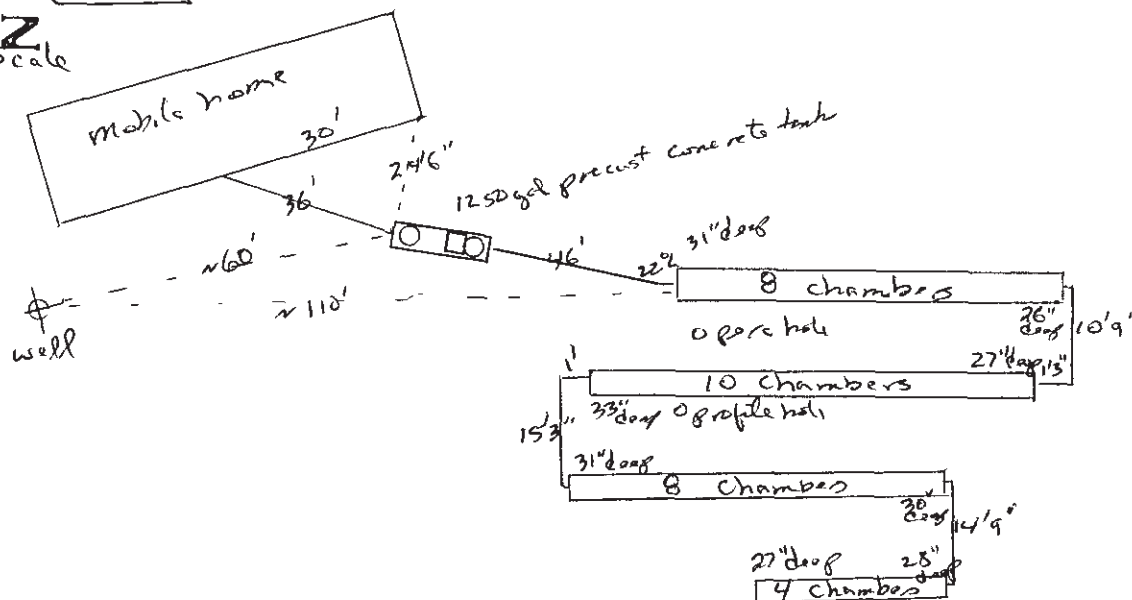 N
scale
mobile home
30'
24'6"
36'
1250 gal precast concrete tank
~60'
46'
22°
31" deep
~110'
well
8 chambers
26" deep
10'9"
O perc hole
27" deep
1'3"
1'
10 chambers
33" deep
O profile hole
15'3"
31" deep
8 chambes
30" deep
14'9"
27" deep
28" deep
4 chambes